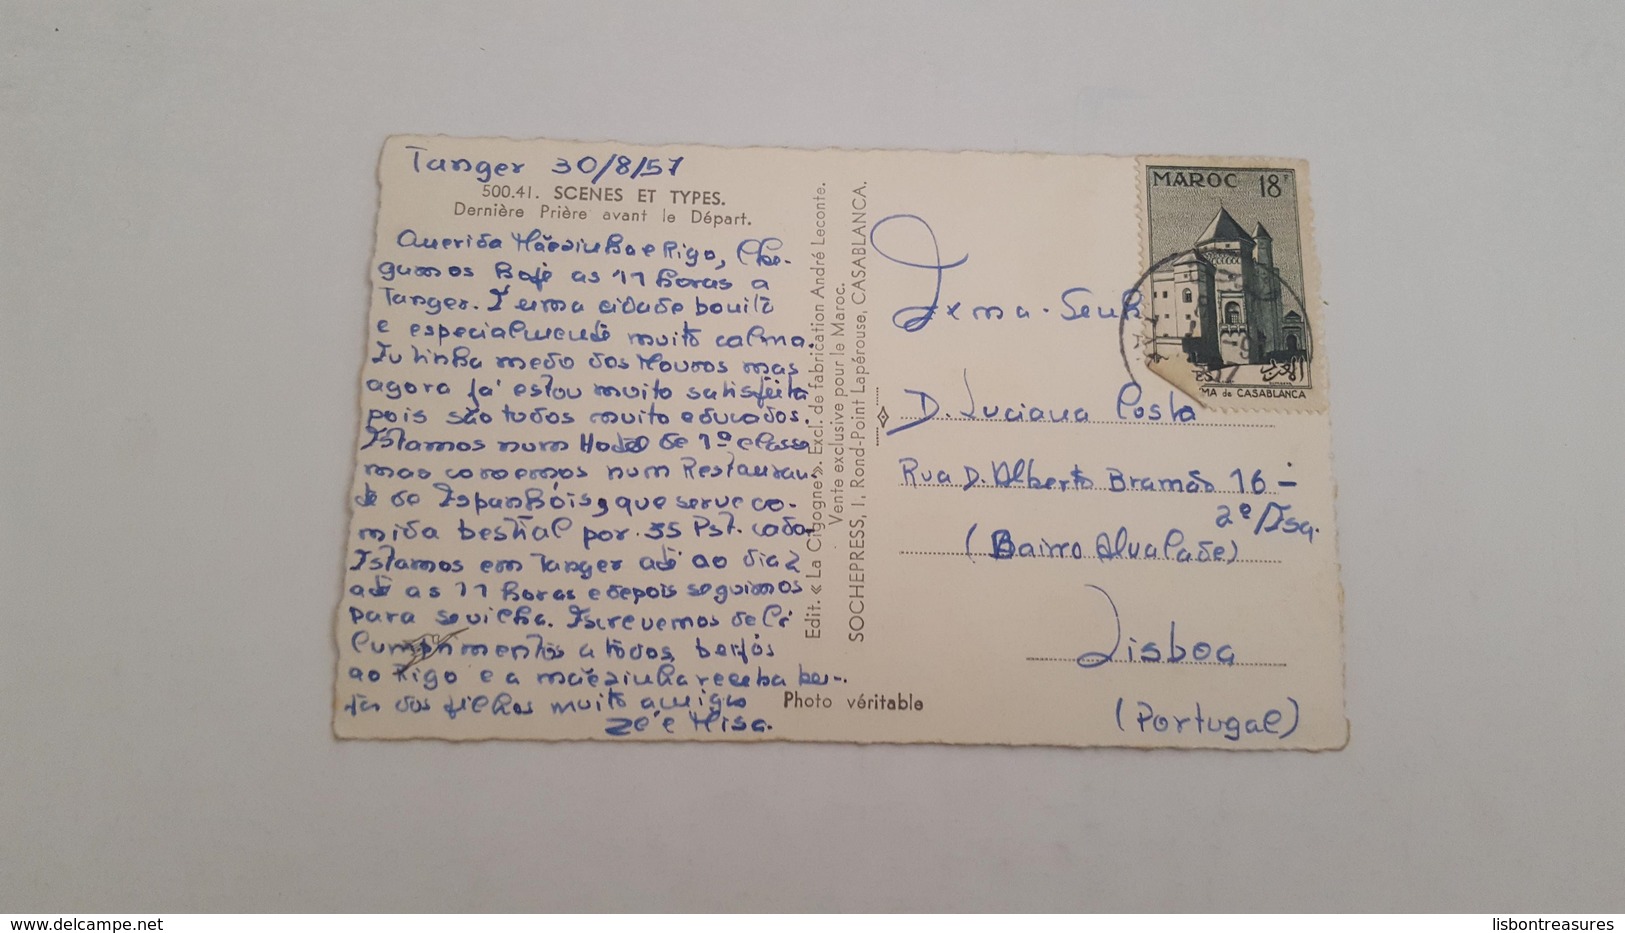 Tanger 30/8/57
500.41. SCENES ET TYPES.
Dernière Prière avant le Départ.
Querida Mãezinha e Rigo, Che-
gamos hoje as 11 horas a
Tanger. É uma cidade bonita
e especialmente muito calma.
Eu tinha medo dos Mouros mas
agora já estou muito satisfeita
pois são todos muito educados.
Estamos num Hotel de 1º classe
mas comemos num Restauran-
te de Espanhóis, que serve co-
mida bestial por 35 Pst. cada.
Estamos em Tanger até ao dia 2
até as 11 horas e depois seguimos
para sevilha. Escrevemos de lá
Cumprimentos a todos, beijos
ao Rigo e a mãezinha receba bei-
jos dos filhos muito amigos
Zé e Misa.
Edit. « La Cigogne ». Excl. de fabrication André Leconte.
Vente exclusive pour le Maroc.
SOCHEPRESS, 1, Rond-Point Lapérouse, CASABLANCA.
Photo véritable
MAROC 18F
MA de CASABLANCA
Exma. Senh
D. Luciana Costa
Rua D. Alberto Bramão 16 -
2º/Esq.
(Bairro Alvalade)
Lisboa
(Portugal)
lisbontreasures
delcampe.net